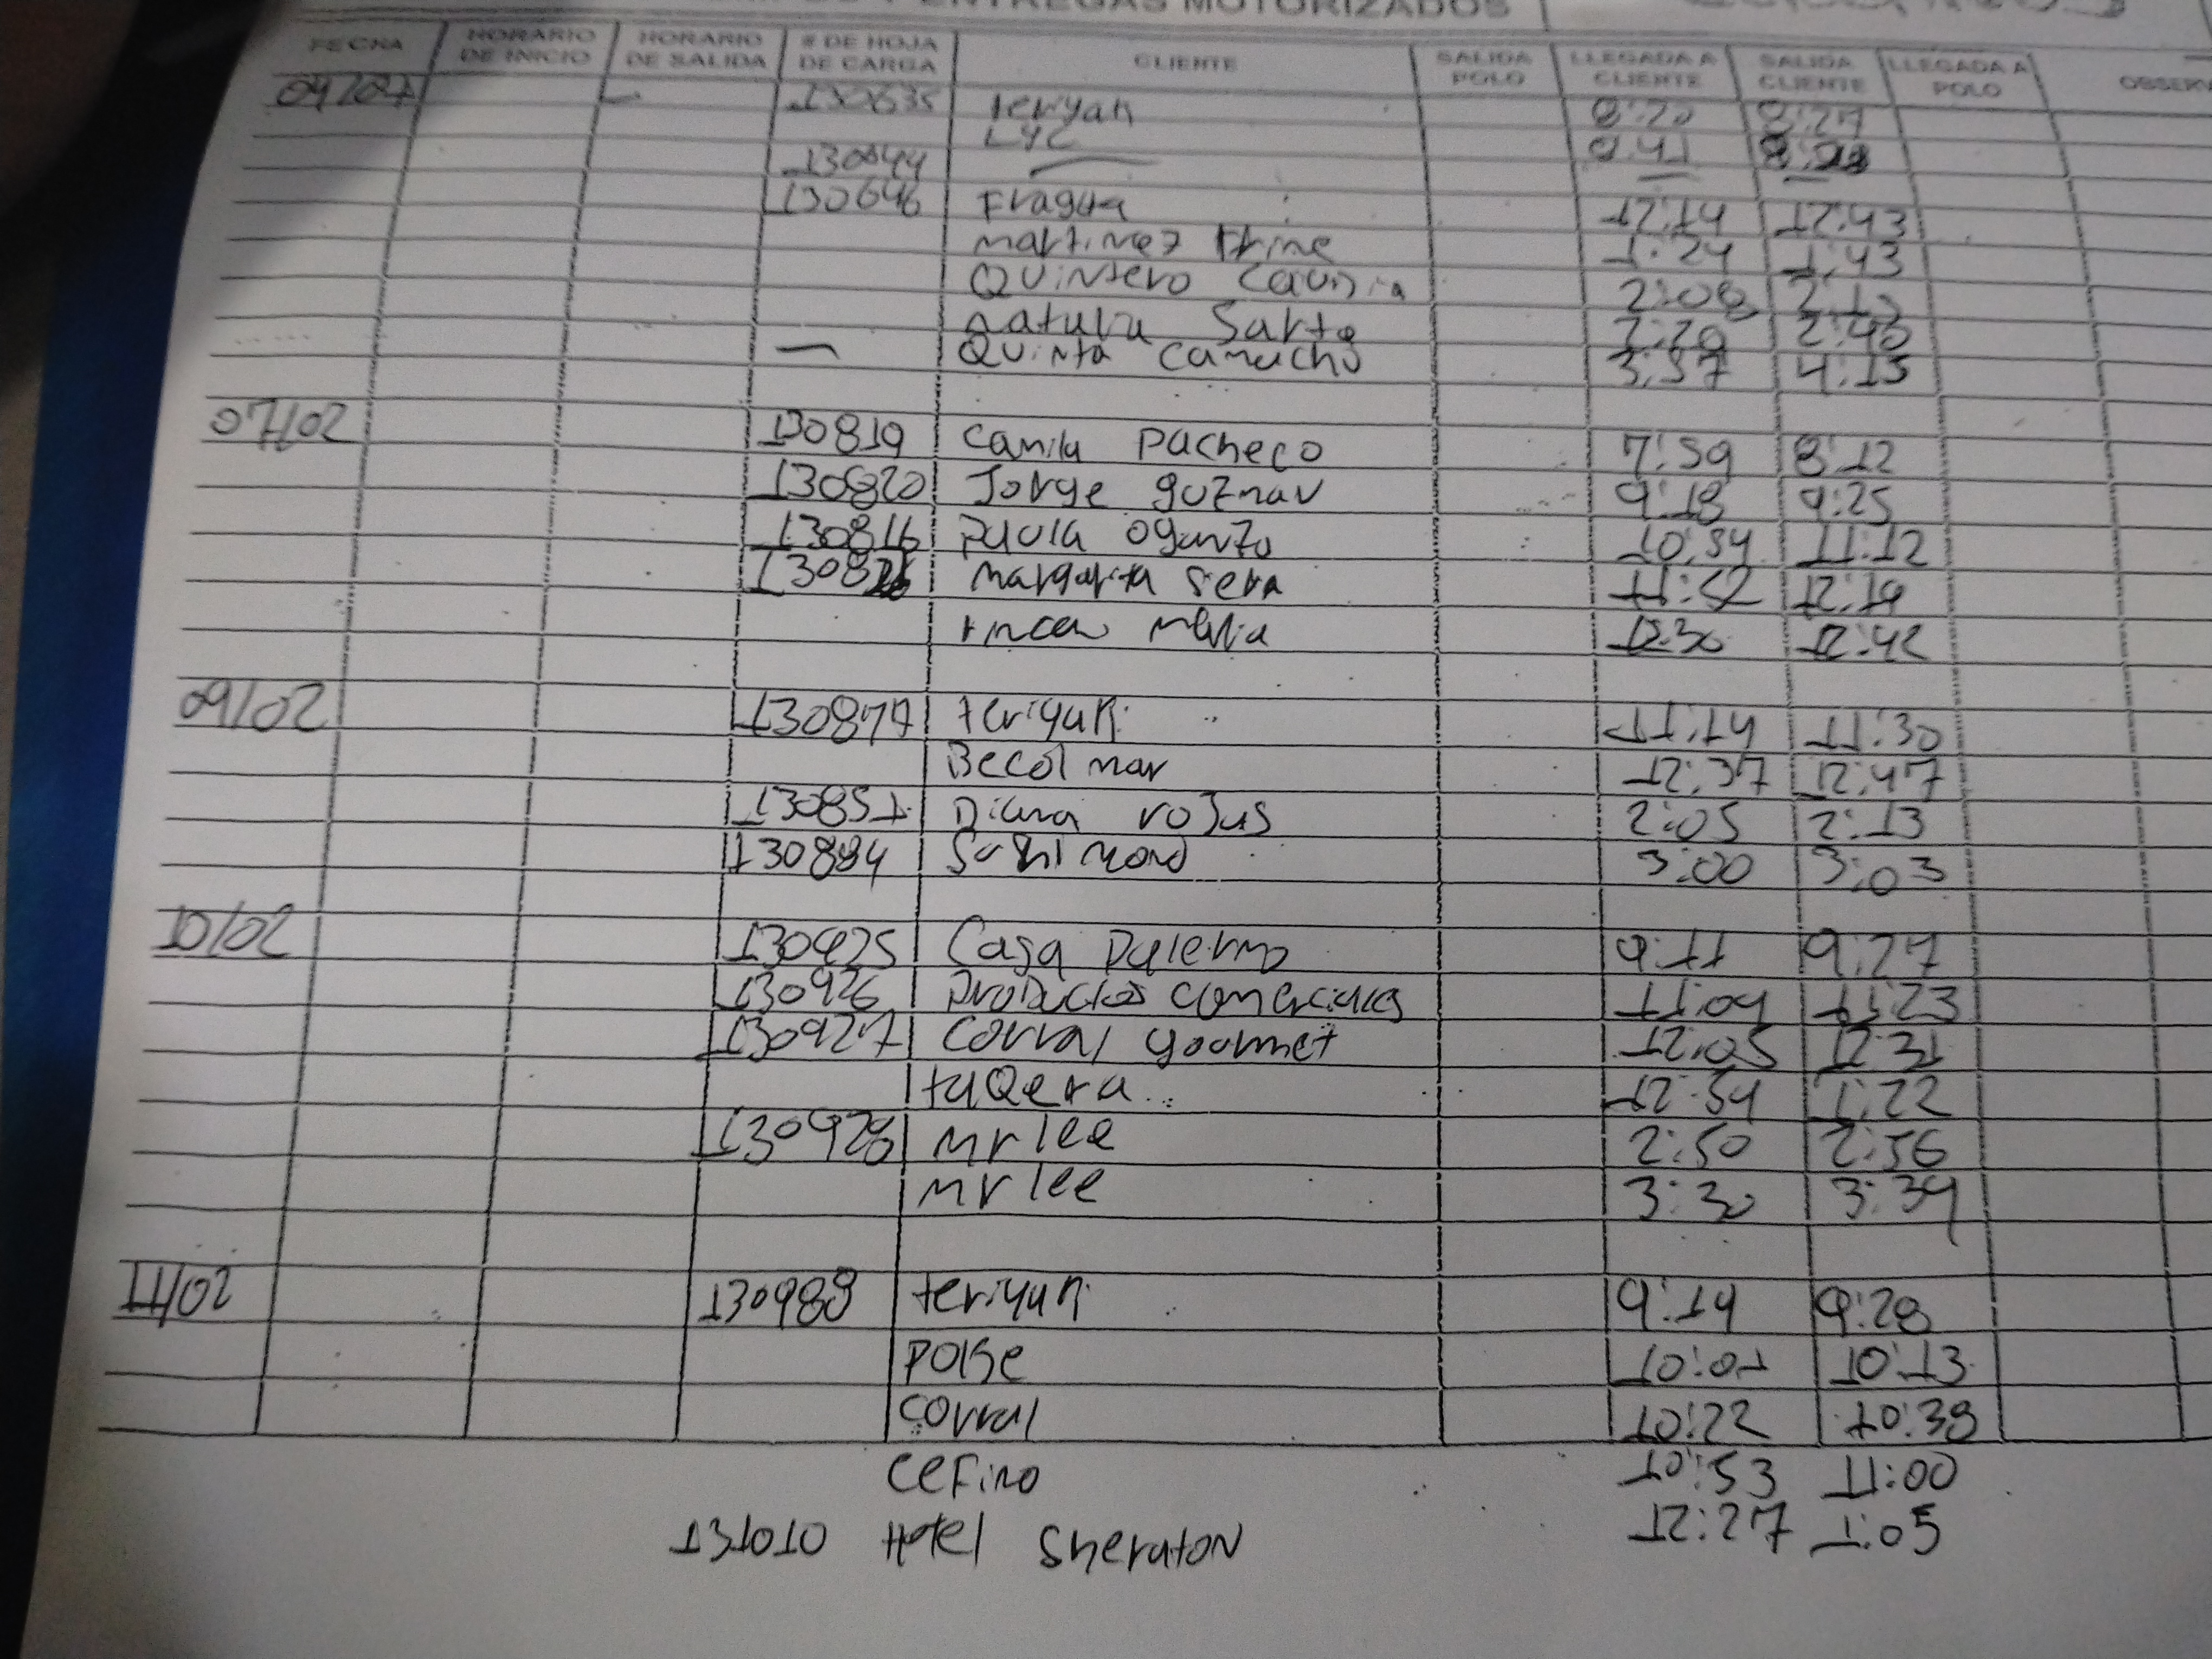 ENTREGAS MOTORIZADOS
FECHA HORARIO DE INICIO HORARIO DE SALIDA # DE HOJA DE CARGA CLIENTE SALIDA POLO LLEGADA A CLIENTE SALIDA CLIENTE LLEGADA A POLO
teriyak 8:20 8:27
LYC 9:41
130644
130646 Fragua 12:14 12:43
martinez 1:24 1:43
Quintero 2:08 2:13
Sarta 2:29 2:40
Quinta Camacho 3:37 4:15
07/02 130819 Camila Pacheco 7:59 8:12
130820 Jorge guzman 9:18 9:25
130816 paola 10:34 11:12
margarita Sera 11:52 12:19
12:30 12:42
09/02 130877 teriyaki 11:14 11:30
Becolmar 12:37 12:47
130851 Diana rojas 2:05 2:13
130884 3:00 3:03
10/02 130925 Casa Palermo 9:11 9:27
130926 productos comerciales 11:04 11:23
130927 corral gourmet 12:05 12:31
taQera 12:54 1:22
130928 mr lee 2:50 2:56
mr lee 3:30 3:39
11/02 130989 teriyaki 9:19 9:28
polse 10:01 10:13
corral 10:22 10:38
CeFino 10:53 11:00
131010 Hotel Sheraton 12:27 1:05